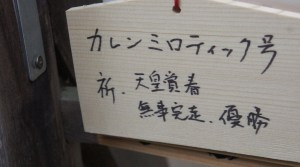 カレンミロティック号
祈.天皇賞春
無事完走.優勝